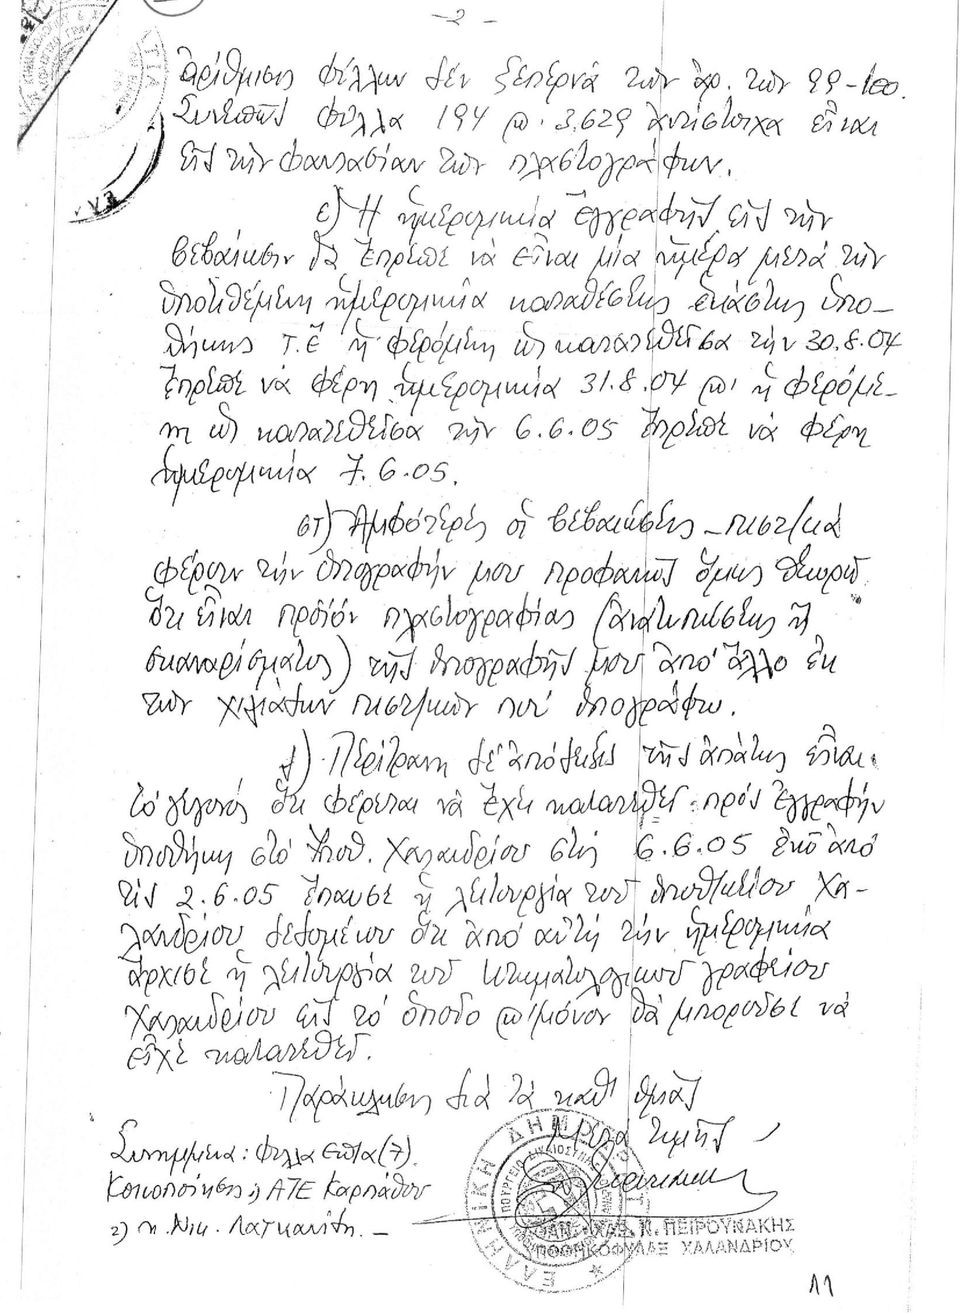 - 2 -
ἀρίθμισις φύλλων δέν ξεπερνᾶ τόν ἀρ. των 99-100.
Συνεπῶς φύλλα 194 & 3.629 ἀντίστοιχα εἶναι
εἰς τήν φαντασίαν τῶν πλαστογράφων.
ε) Ἡ ἡμερομηνία ἐγγραφῆς εἰς τήν
βεβαίωσιν θά ἔπρεπε νά εἶναι μία ἡμέρα μετά τήν
ὑποτιθέμενη ἡμερομηνία καταθέσεως ἑκάστης ὑπο-
θήκης Τ.Ε ἡ φερόμενη ὡς κατατεθεῖσα τήν 30.8.04
ἔπρεπε νά φέρη ἡμερομηνία 31.8.04 & ἡ φερόμε-
νη ὡς κατατεθεῖσα τήν 6.6.05 ἔπρεπε νά φέρη
ἡμερομηνία 7.6.05.
στ) Ἀμφότερες οἱ βεβαιώσεις - πιστ/κά
φέρουν τήν ὑπογραφήν μου προφανῶς ὅμως θεωρῶ
ὅτι εἶναι προϊόν πλαστογραφίας (ἀνατυπώσεως ἤ
σκαναρίσματος) τῆς ὑπογραφῆς μου ἀπό ἄλλο ἐκ
τῶν χιλιάδων πιστ/κῶν πού ὑπογράφω.
ζ) Περίτρανη δέ ἀπόδειξις τῆς ἀπάτης εἶναι
τό γεγονός ὅτι φέρεται νά ἔχει κατατεθεῖ πρός ἐγγραφήν
ὑποθήκη στό Ὑποθ. Χαλανδρίου στίς 6.6.05 ἐνῶ ἀπό
τίς 2.6.05 ἔπαυσε ἡ λειτουργία τοῦ ὑποθ/κείου Χα-
λανδρίου δεδομένου ὅτι ἀπό αὐτή τήν ἡμερομηνία
ἄρχισε ἡ λειτουργία τοῦ κτηματολογικοῦ γραφείου
Χαλανδρίου εἰς τό ὁποῖο & μόνον θά μποροῦσε νά
εἶχε κατατεθεῖ.
Παράκλησις διά τά καθ' ὑμᾶς
Μετά τιμῆς
Συνημμένα: φύλλα ἑπτά (7).
Κοινοποίησις 1) ΑΤΕ Καρπάθου
2) κ. Νικ.
ΕΛΛΗΝΙΚΗ ΔΗΜΟΚΡΑΤΙΑ
ΥΠΟΥΡΓΕΙΟ ΔΙΚΑΙΟΣΥΝΗΣ
Π. ΠΕΙΡΟΥΝΑΚΗΣ
ΥΠΟΘΗΚΟΦΥΛΑΞ ΧΑΛΑΝΔΡΙΟΥ
11